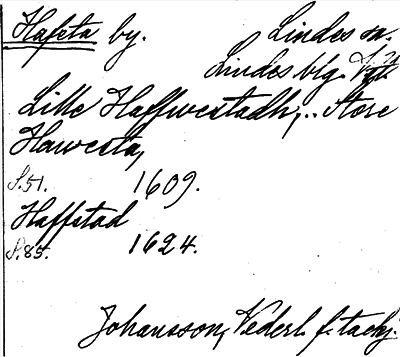 Hafsta by. Lindes sn.
Lindes blg.
Lille Haffwestadh,.. Store
Hawesta,
S.51. 1609.
Haffstad
S.85. 1624.
Johansson, Nederl. f. tackj.